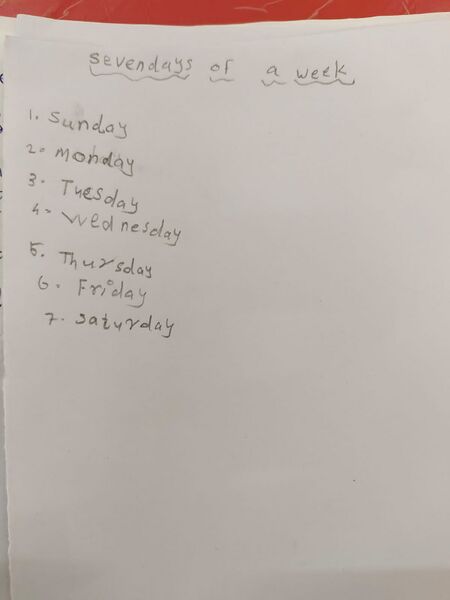 sevendays of a week
1. Sunday
2. Monday
3. Tuesday
4. Wednesday
5. Thursday
6. Friday
7. Saturday